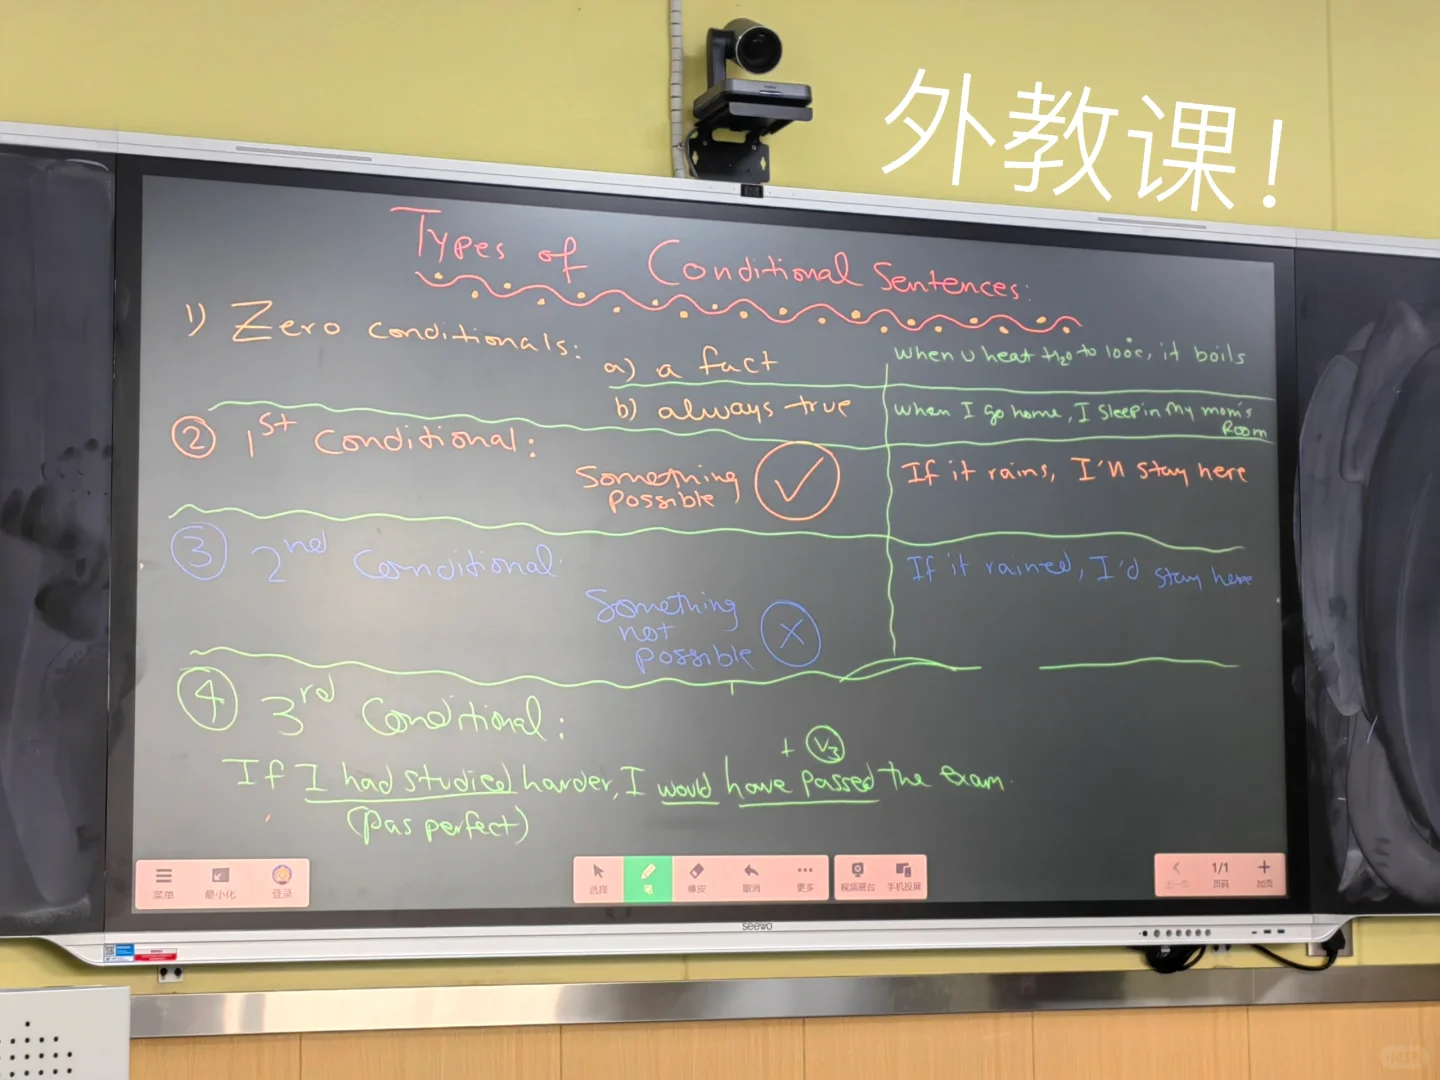 外教课！
Types of Conditional Sentences:
1) Zero conditionals:
a) a fact
when u heat H₂o to 100°c, it boils
b) always true
when I go home, I sleep in my mom's
Room
② 1st Conditional:
Something
possible
If it rains, I'll stay here
③ 2nd Conditional:
Something
not
possible
X
If it rained, I'd stay here
④ 3rd Conditional:
+ V3
If I had studied harder, I would have passed the exam.
(pas perfect)
菜单
最小化
登录
选择
笔
橡皮
撤销
更多
视频展台
手机投屏
上一页
1/1
页码
加页
seewo